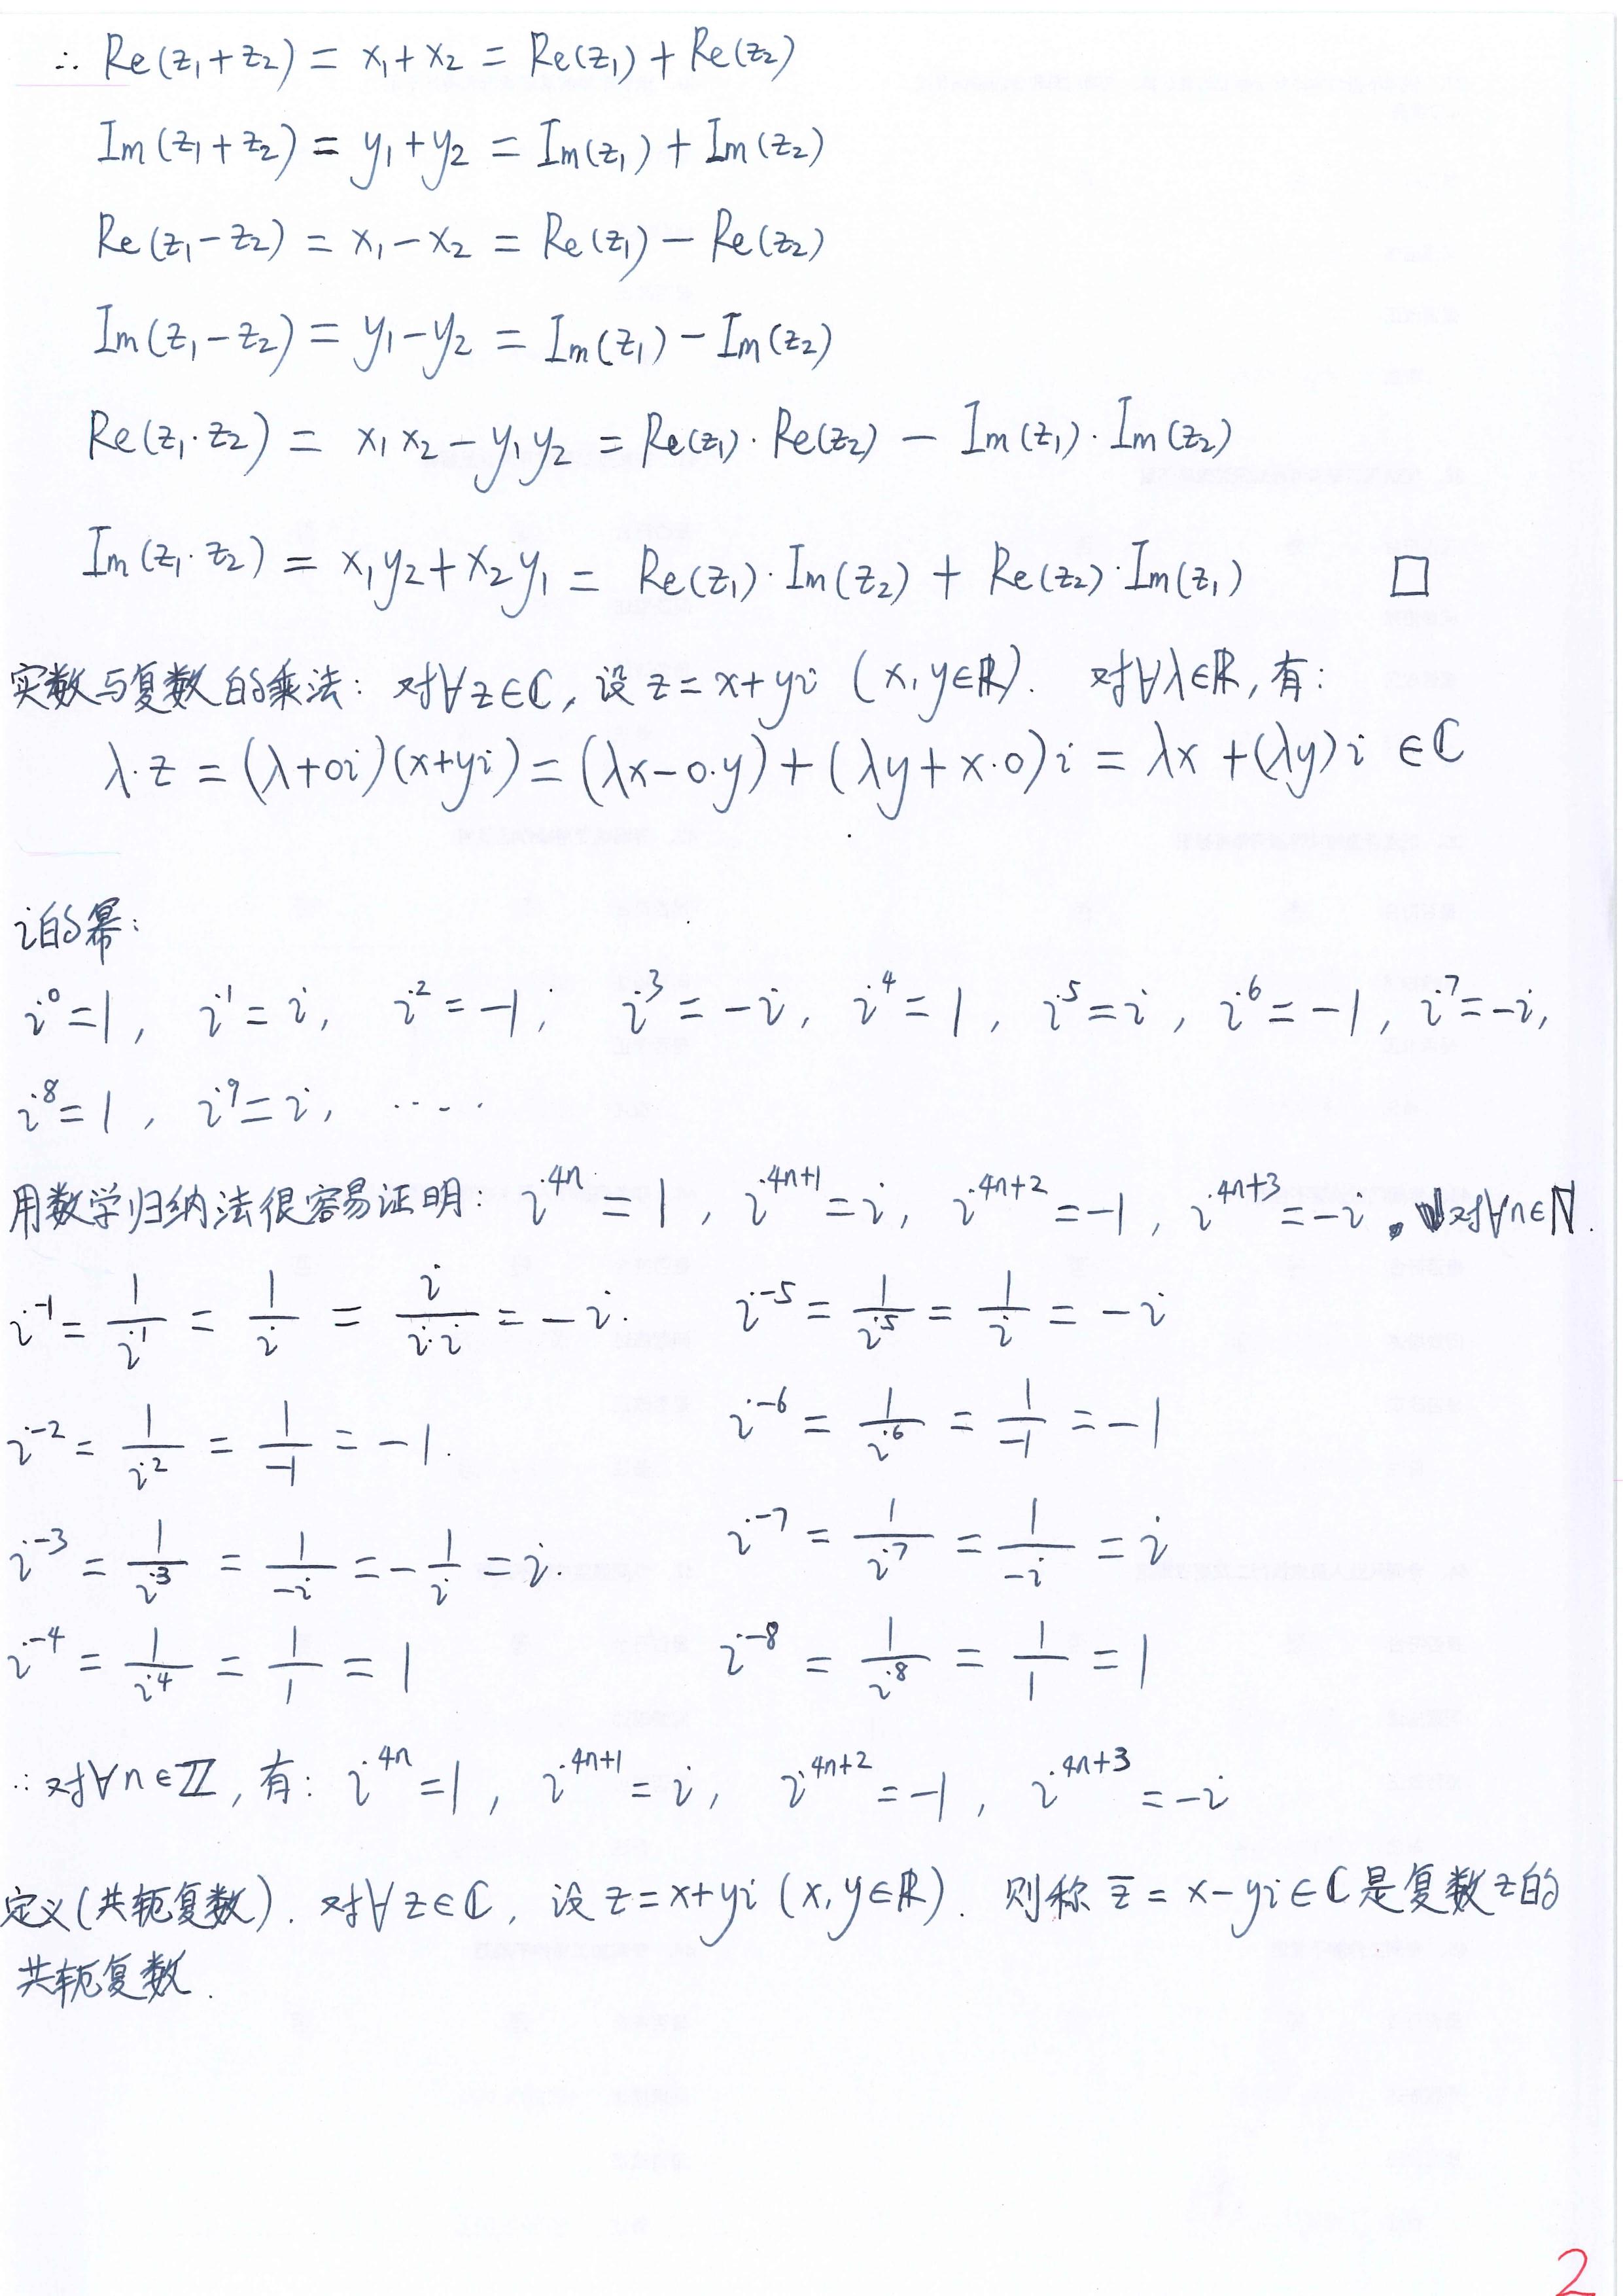 ∴ Re(z₁+z₂) = x₁+x₂ = Re(z₁) + Re(z₂)
Im(z₁+z₂) = y₁+y₂ = Im(z₁) + Im(z₂)
Re(z₁-z₂) = x₁-x₂ = Re(z₁) - Re(z₂)
Im(z₁-z₂) = y₁-y₂ = Im(z₁) - Im(z₂)
Re(z₁·z₂) = x₁x₂-y₁y₂ = Re(z₁)·Re(z₂) - Im(z₁)·Im(z₂)
Im(z₁·z₂) = x₁y₂+x₂y₁ = Re(z₁)·Im(z₂) + Re(z₂)·Im(z₁) □
实数与复数的乘法: 对∀z∈ℂ, 设z=x+yi (x,y∈ℝ). 对∀λ∈ℝ, 有:
λ·z = (λ+0i)(x+yi) = (λx-0·y)+(λy+x·0)i = λx+(λy)i ∈ℂ
i的幂:
i⁰=1, i¹=i, i²=-1, i³=-i, i⁴=1, i⁵=i, i⁶=-1, i⁷=-i,
i⁸=1, i⁹=i, ·····
用数学归纳法很容易证明: i⁴ⁿ=1, i⁴ⁿ⁺¹=i, i⁴ⁿ⁺²=-1, i⁴ⁿ⁺³=-i. 对∀n∈ℕ.
i⁻¹ = 1/i¹ = 1/i = i/(i·i) = -i. i⁻⁵ = 1/i⁵ = 1/i = -i
i⁻² = 1/i² = 1/-1 = -1. i⁻⁶ = 1/i⁶ = 1/-1 = -1
i⁻³ = 1/i³ = 1/-i = -1/i = i. i⁻⁷ = 1/i⁷ = 1/-i = i
i⁻⁴ = 1/i⁴ = 1/1 = 1 i⁻⁸ = 1/i⁸ = 1/1 = 1
∴ 对∀n∈ℤ, 有: i⁴ⁿ=1, i⁴ⁿ⁺¹=i, i⁴ⁿ⁺²=-1, i⁴ⁿ⁺³=-i
定义(共轭复数). 对∀z∈ℂ, 设z=x+yi (x,y∈ℝ). 则称z̅=x-yi∈ℂ是复数z的
共轭复数.
2